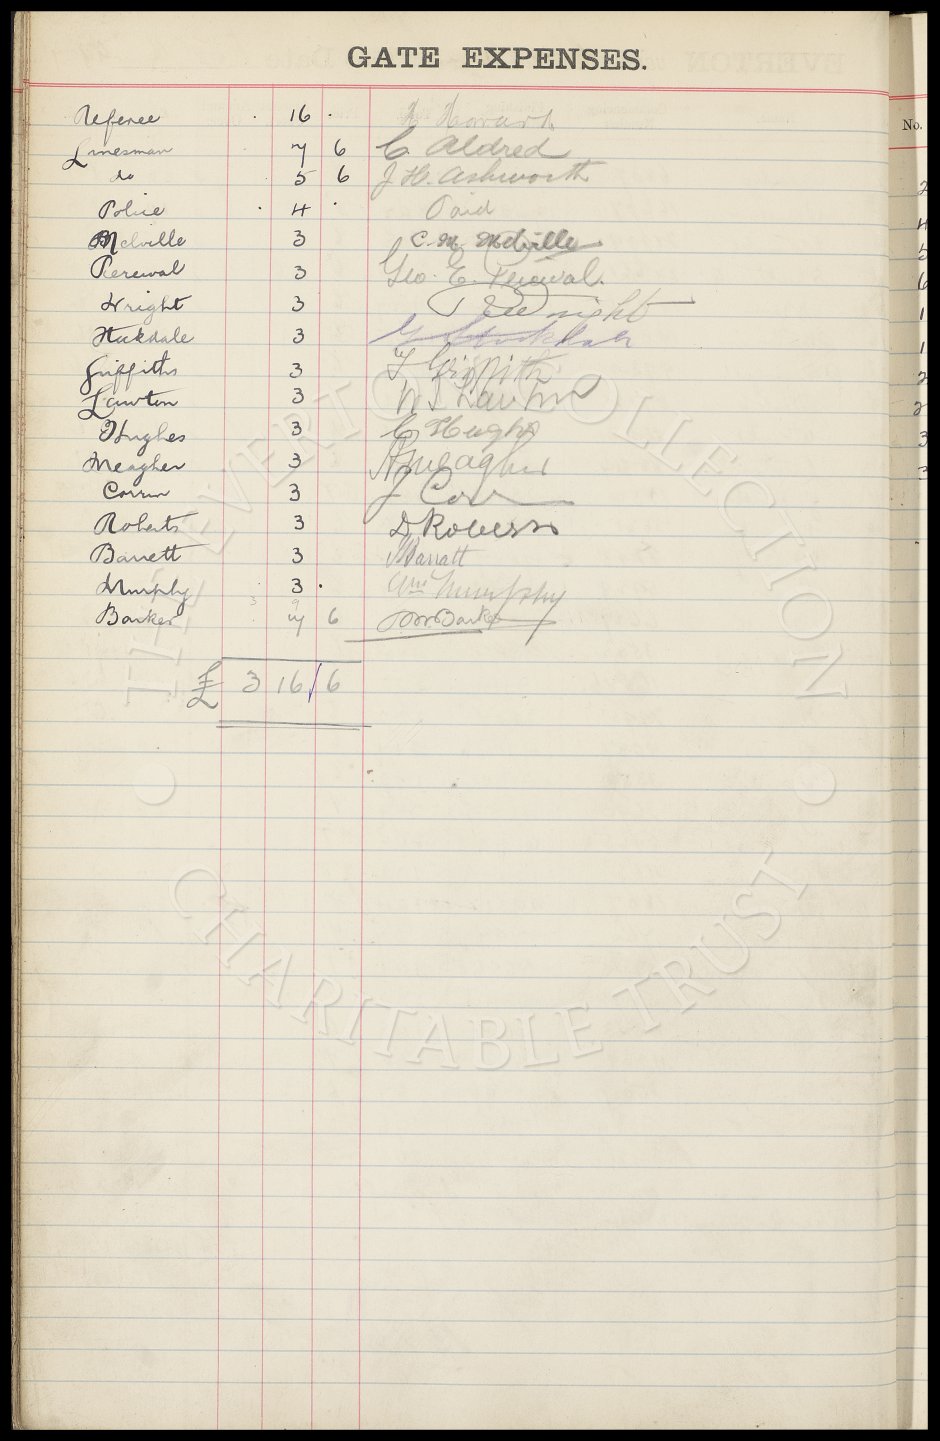 GATE EXPENSES.
No.
Referee . 16 . Howarth
Linesman 7 6 C. Aldred
do 5 6 J H. Ashworth
Police . 4 . Paid
Melville 3 C. M. Melville
Percival 3 Geo. E. Percival.
Wright 3 Wright
Stockdale 3 G Stockdale
Griffiths 3 T Griffith
Lawton 3 Lawton
Hughes 3 C Hughes
Meagher 3 Meagher
Corrin 3 J Corr
Roberts 3 D Roberts
Barrett 3 Barratt
Murphy 3 . Wm Murphy
Barker 7 6 Barker
£ 3 16 6
THE EVERTON COLLECTION
CHARITABLE TRUST